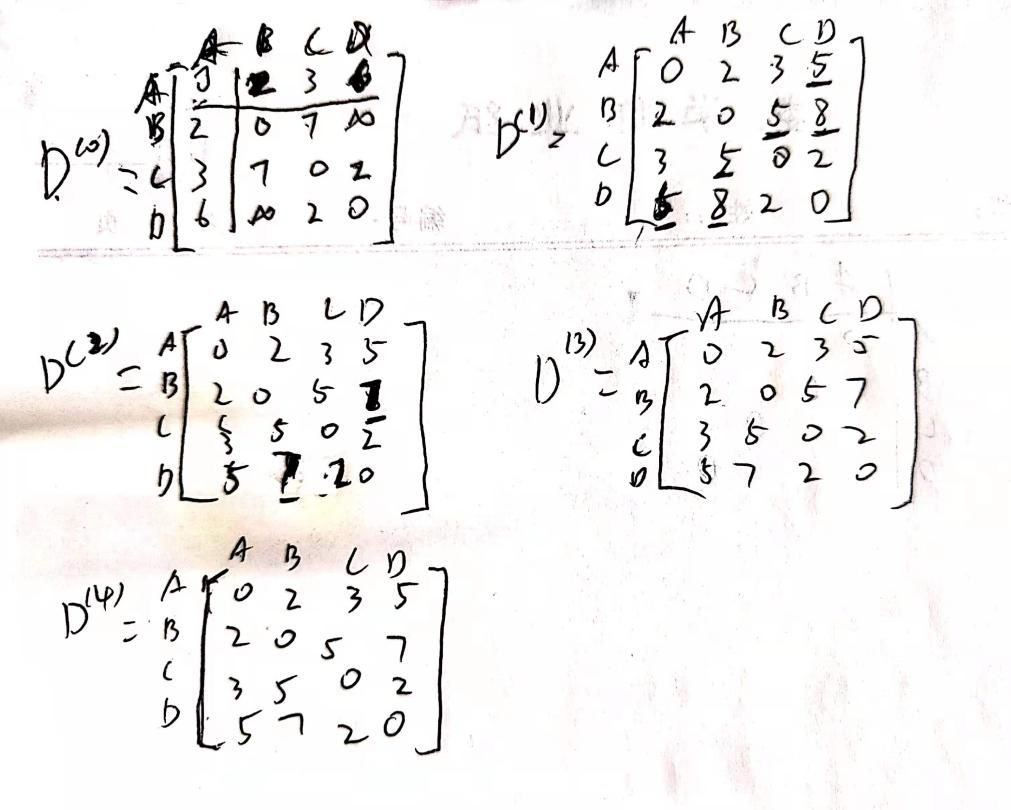 A B C D
A 0 2 3 6
D(0) = B 2 0 7 ∞
C 3 7 0 2
D 6 ∞ 2 0
A B C D
A 0 2 3 5
D(1) = B 2 0 5 8
C 3 5 0 2
D 5 8 2 0
A B C D
A 0 2 3 5
D(2) = B 2 0 5 7
C 3 5 0 2
D 5 7 2 0
A B C D
A 0 2 3 5
D(3) = B 2 0 5 7
C 3 5 0 2
D 5 7 2 0
A B C D
A 0 2 3 5
D(4) = B 2 0 5 7
C 3 5 0 2
D 5 7 2 0